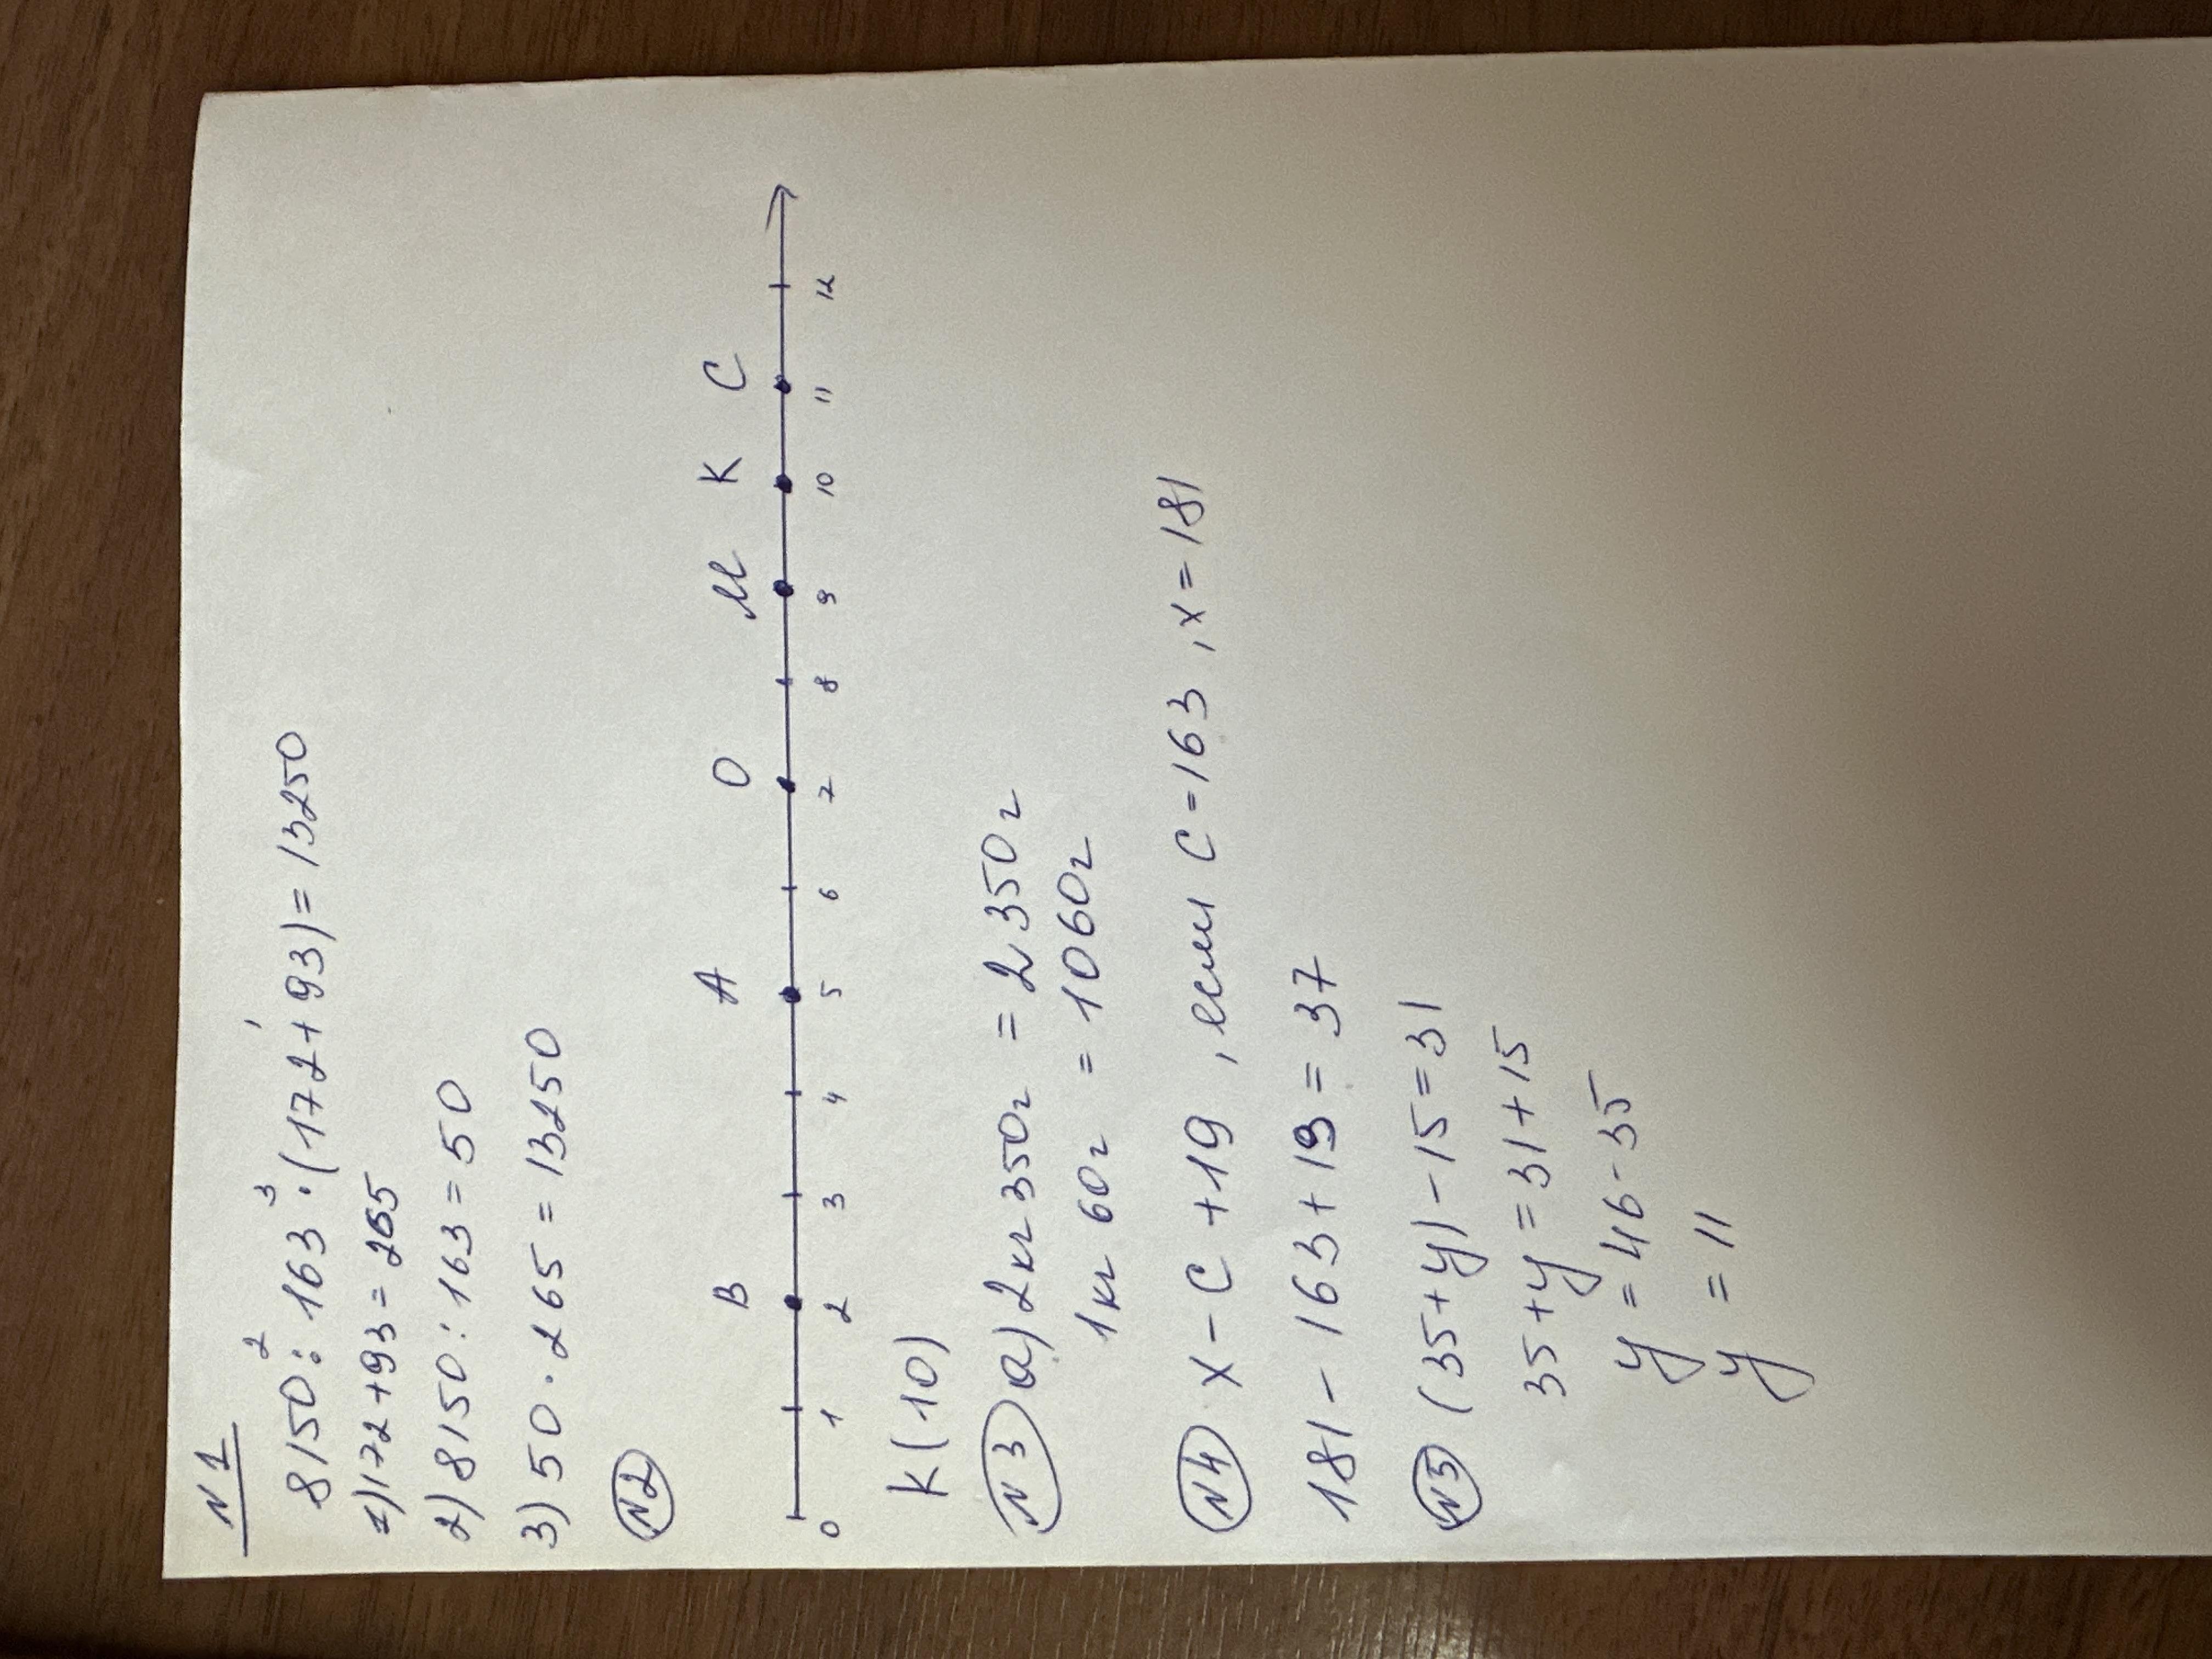 N 1
8150 :² 163 ·³ (172 +¹ 93) = 13250
1) 172 + 93 = 265
2) 8150 : 163 = 50
3) 50 · 265 = 13250
N2
B A O M K C
0 1 2 3 4 5 6 7 8 9 10 11 12
K(10)
N 3 а) 2кг 350г = 2350г
1кг 60г = 1060г
N4 x - c + 19 , если c = 163 , x = 181
181 - 163 + 19 = 37
N5 (35 + y) - 15 = 31
35 + y = 31 + 15
y = 46 - 35
y = 11